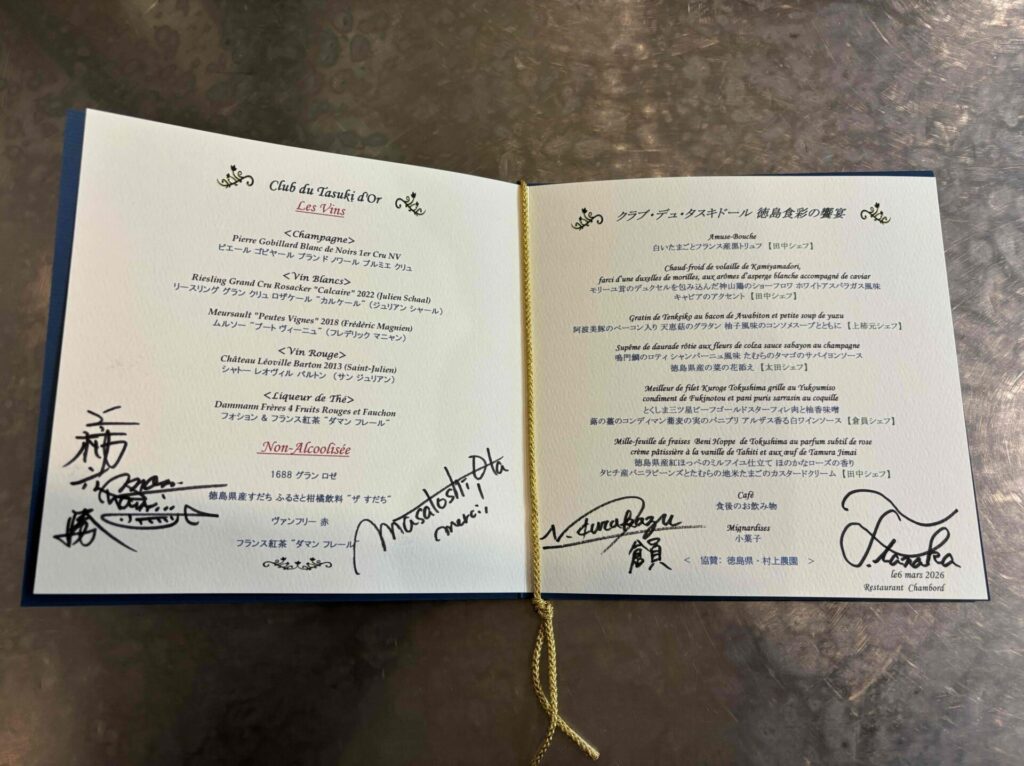 Club du Tasuki d'Or
Les Vins
<Champagne>
Pierre Gobillard Blanc de Noirs 1er Cru NV
ピエール ゴビヤール ブランド ノワール プルミエ クリュ
<Vin Blancs>
Riesling Grand Cru Rosacker "Calcaire" 2022 (Julien Schaal)
リースリング グラン クリュ ロザケール "カルケール" (ジュリアン シャール)
Meursault "Peutes Vignes" 2018 (Frédéric Magnien)
ムルソー "プート ヴィーニュ" (フレデリック マニャン)
<Vin Rouge>
Château Léoville Barton 2013 (Saint-Julien)
シャトー レオヴィル バルトン (サン ジュリアン)
<Liqueur de Thé>
Dammann Frères 4 Fruits Rouges et Fauchon
フォション & フランス紅茶 "ダマン フレール"
Non-Alcoolisée
1688 グラン ロゼ
徳島県産すだち ふるさと柑橘飲料 "ザ すだち"
ヴァンフリー 赤
フランス紅茶 "ダマン フレール"
Masatoshi Ota
merci!
クラブ・デュ・タスキドール 徳島食彩の饗宴
Amuse-Bouche
白いたまごとフランス産黒トリュフ 【田中シェフ】
Chaud-froid de volaille de Kamiyamadori,
farci d'une duxelles de morilles, aux arômes d'asperge blanche accompagné de caviar
モリーユ茸のデュクセルを包み込んだ神山鶏のショーフロワ ホワイトアスパラガス風味
キャビアのアクセント 【田中シェフ】
Gratin de Tenkeiko au bacon de Awabiton et petite soup de yuzu
阿波美豚のベーコン入り 天恵菇のグラタン 柚子風味のコンソメスープとともに 【上柿元シェフ】
Supême de daurade rôtie aux fleurs de colza sauce sabayon au champagne
鳴門鯛のロティ シャンパーニュ風味 たむらのタマゴのサバイヨンソース
徳島県産の菜の花添え 【太田シェフ】
Meilleur de filet Kuroge Tokushima grille au Yukoumiso
condiment de Fukinotou et pani puris sarrasin au coquille
とくしま三ツ星ビーフゴールドスターフィレ肉と柚香味噌
蕗の薹のコンディマン蕎麦の実のパニプリ アルザス香る白ワインソース 【倉員シェフ】
Mille-feuille de fraises Beni Hoppe de Tokushima au parfum subtil de rose
crème pâtissière à la vanille de Tahiti et aux œuf de Tamura Jimai
徳島県産紅ほっぺのミルフイユ仕立て ほのかなローズの香り
タヒチ産バニラビーンズとたむらの地米たまごのカスタードクリーム 【田中シェフ】
Café
食後のお飲み物
Mignardises
小菓子
< 協賛: 徳島県・村上農園 >
倉員
T. Tanaka
le6 mars 2026
Restaurant Chambord